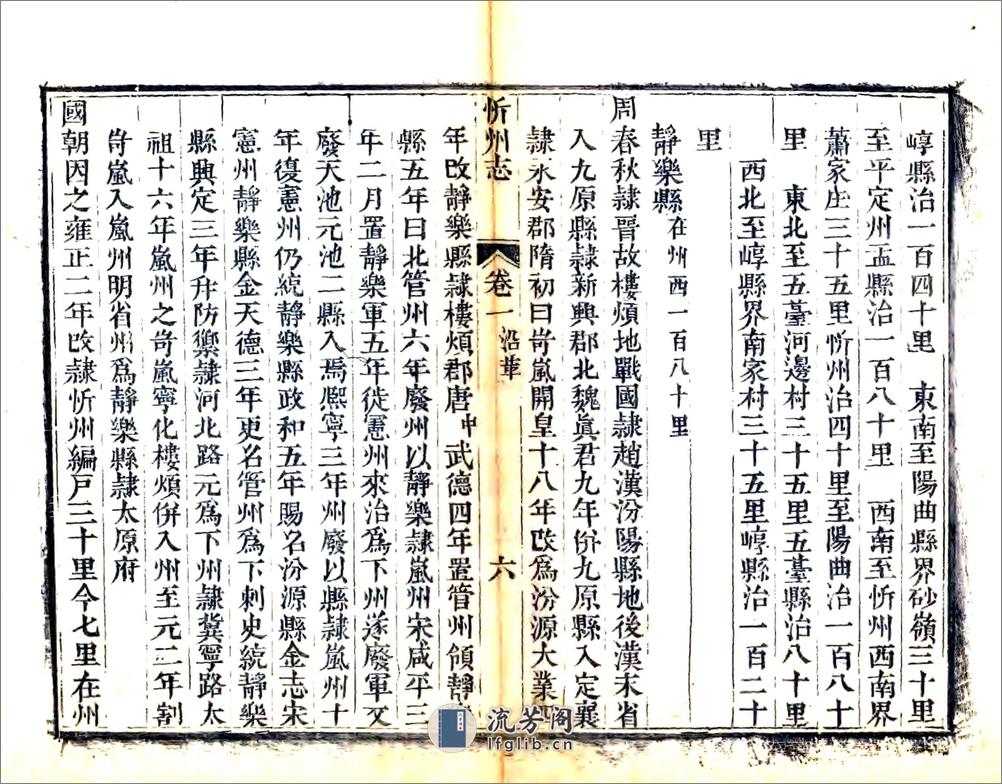 崞縣治一百四十里　東南至陽曲縣界砂嶺三十里
至平定州盂縣治一百八十里　西南至忻州西南界
蕭家庄三十五里忻州治四十里至陽曲治一百八十
里　東北至五臺河邊村三十五里五臺縣治八十里
西北至崞縣界南家村三十五里崞縣治一百二十
里
靜樂縣在州西一百八十里
周春秋隷晉故樓煩地戰國隷趙漢汾陽縣地後漢末省
入九原縣隷新興郡北魏眞君九年併九原縣入定襄
隷永安郡隋初曰岢嵐開皇十八年改爲汾源大業四
忻州志　卷一　沿革　六
年改靜樂縣隷樓煩郡唐中武德四年置管州領靜樂
縣五年曰北管州六年廢州以靜樂隷嵐州宋咸平三
年二月置靜樂軍五年徙憲州來治爲下州遂廢軍又
廢天池元池二縣入焉熙寧三年州廢以縣隷嵐州十
年復憲州仍統靜樂縣政和五年賜名汾源縣金志宋
憲州靜樂縣金天德三年更名管州爲下刺史統靜樂
縣興定三年升防禦隷河北路元爲下州隷冀寧路太
祖十六年嵐州之岢嵐寧化樓煩併入州至元二年割
岢嵐入嵐州明省州爲靜樂縣隷太原府
國朝因之雍正二年改隷忻州編戸三十里今七里在州
流芳阁
lfglib.cn